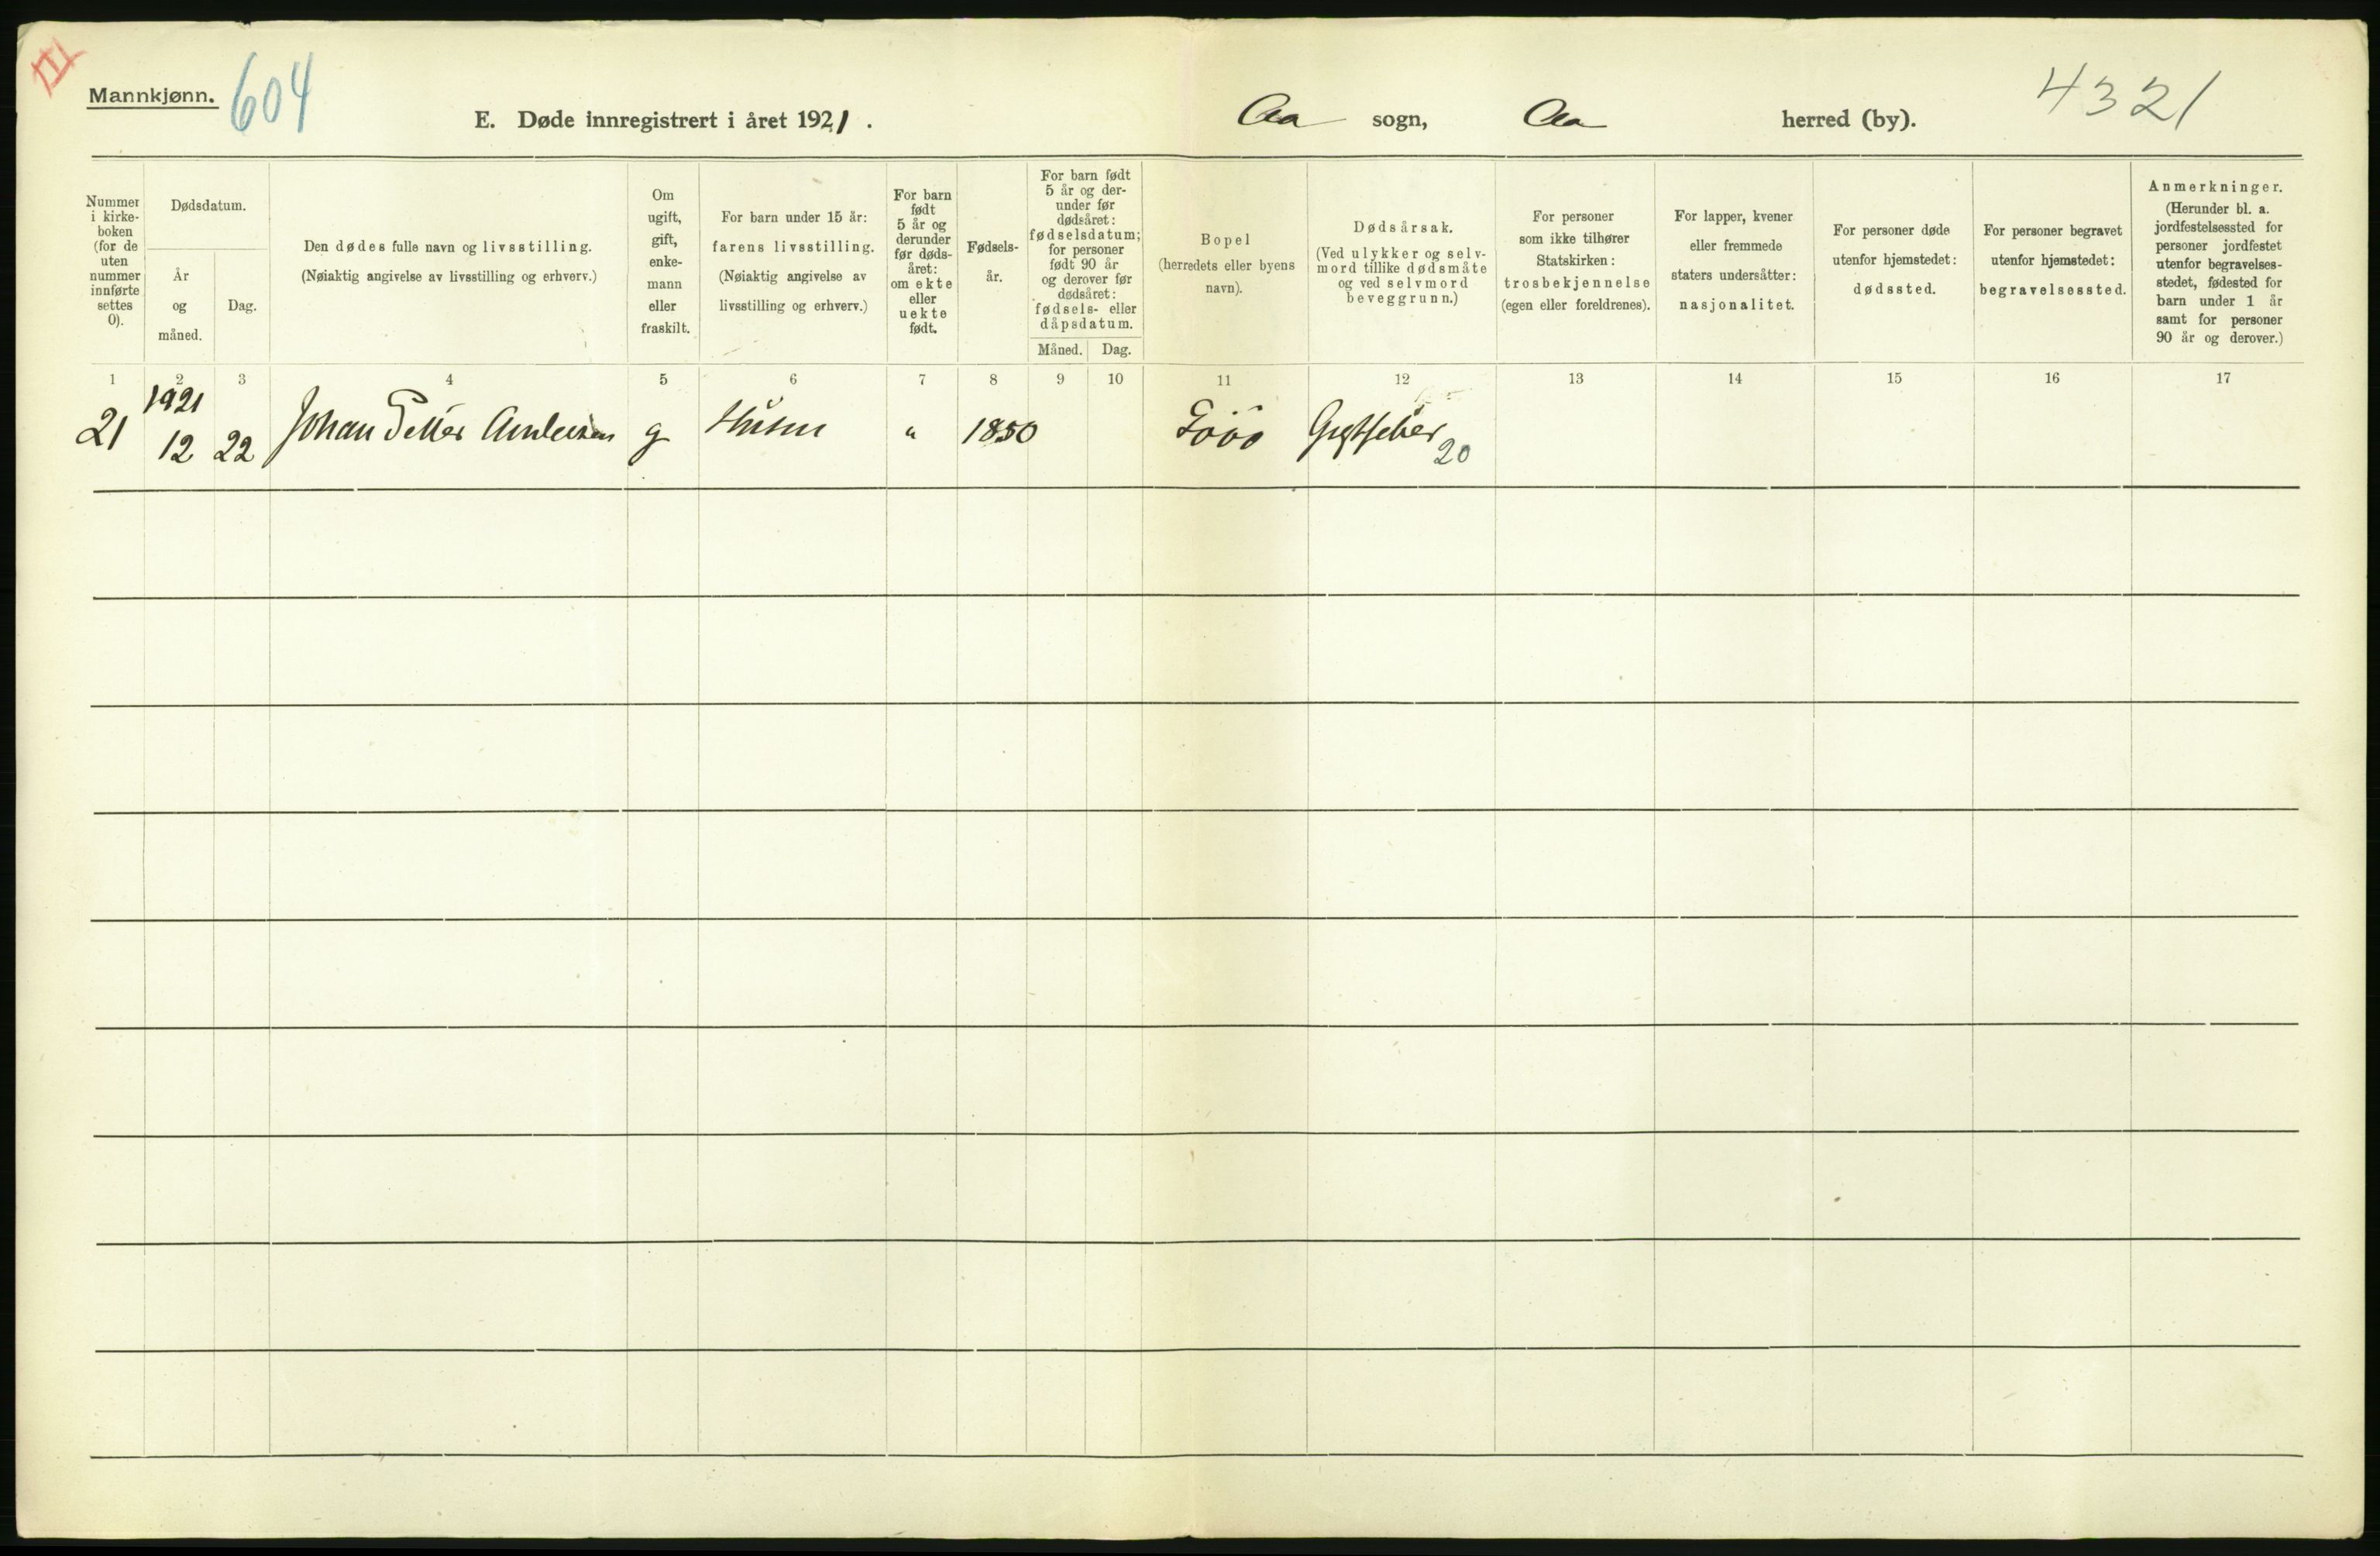 III
Mannkjønn.
604
E. Døde innregistrert i året 1921.
Aa sogn, Aa herred (by).
4321
Nummer i kirke-boken (for de uten nummer innførte settes 0).
Dødsdatum.
År og måned.
Dag.
Den dødes fulle navn og livsstilling.
(Nøiaktig angivelse av livsstilling og erhverv.)
Om ugift, gift, enke-mann eller fraskilt.
For barn under 15 år: farens livsstilling.
(Nøiaktig angivelse av livsstilling og erhverv.)
For barn født 5 år og derunder før døds-året: om ekte eller uekte født.
Fødsels-år.
For barn født 5 år og der-under før dødsåret: fødselsdatum; for personer født 90 år og derover før dødsåret: fødsels- eller dåpsdatum.
Måned.
Dag.
Bopel
(herredets eller byens navn).
Dødsårsak.
(Ved ulykker og selv-mord tillike dødsmåte og ved selvmord beveggrunn.)
For personer som ikke tilhører Statskirken: trosbekjennelse (egen eller foreldrenes).
For lapper, kvener eller fremmede staters undersåtter: nasjonalitet.
For personer døde utenfor hjemstedet: dødssted.
For personer begravet utenfor hjemstedet: begravelsessted.
Anmerkninger.
(Herunder bl. a. jordfestelsessted for personer jordfestet utenfor begravelses-stedet, fødested for barn under 1 år samt for personer 90 år og derover.)
1 2 3 4 5 6 7 8 9 10 11 12 13 14 15 16 17
1921
21 12 22 Johan Petter Andersen g " 1850 Gigtfeber
20